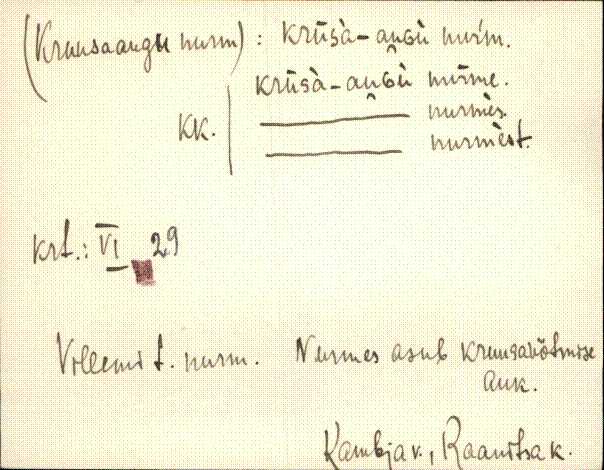 (Kruusaaugu nurm) : krūsà-au̯gù nuŕm.
krūsà-au̯gù nuŕme.
KK. nurmès.
nurmèst.
krt.: VI 29
Villemi t. nurm. Nurmes asub kruusavõtmise
auk.
Kambja v., Raanitsa k.